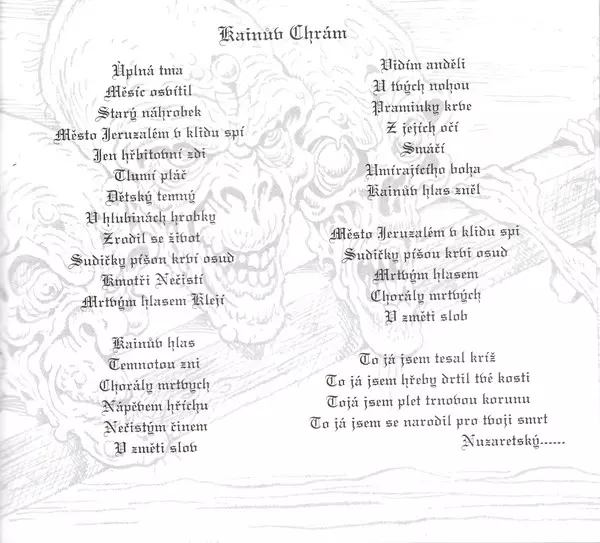 Kainův Chrám
Úplná tma
Měsíc osvítil
Starý náhrobek
Město Jeruzalém v klidu spí
Jen hřbitovní zdi
Tlumí pláč
Dětský temný
V hlubinách hrobky
Zrodil se život
Sudičky píšou krví osud
Kmotři Nečistí
Mrtvým hlasem Klejí
Kainův hlas
Temnotou zni
Chorály mrtvych
Nápěvem hříchu
Nečistým činem
V změti slov
Vidím anděli
U tvých nohou
Pramínky krve
Z jejích očí
Smáčí
Umírajícího boha
Kainův hlas zněl
Město Jeruzalém v klidu spi
Sudičky píšou krvi osud
Mrtvým hlasem
Chorály mrtvých
V změti slob
To já jsem tesal kríž
To já jsem hřeby drtil tvé kosti
Tojá jsem plet trnovou korunu
To já jsem se narodil pro tvoji smrt
Nuzaretský......